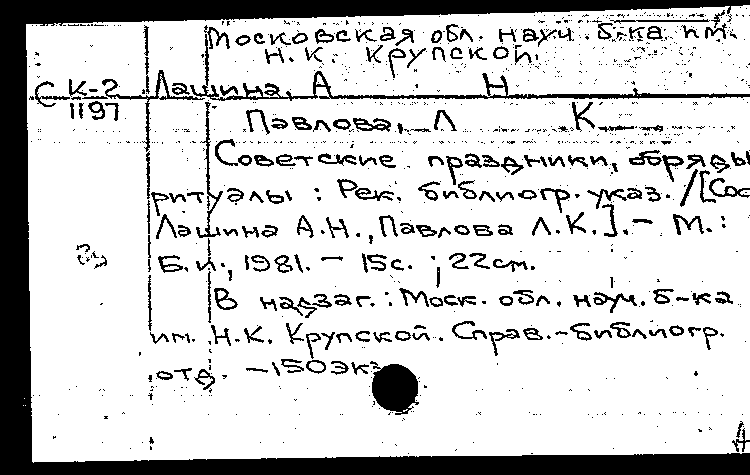 Московская обл. науч. б-ка им.
Н.К. Крупской.
С К-2 Лашина, А Н
1197
Павлова, Л К
Советские праздники, обряды
ритуалы : Рек. библиогр. указ. / [Сос
Лашина А.Н., Павлова Л.К.]. – М. :
Б.и., 1981. – 15с. ; 22см.
В надзаг. : Моск. обл. науч. б-ка
им. Н.К. Крупской. Справ.-библиогр.
отд. – 150экз